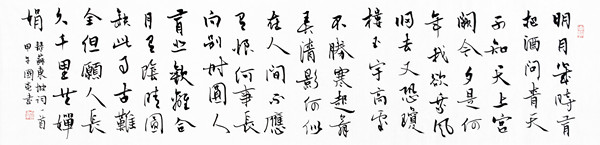 明月幾時有
把酒問青天
不知天上宮
闕今夕是何
年我欲乘風
歸去又恐瓊
樓玉宇高處
不勝寒起舞
弄清影何似
在人間不應
有恨何事長
向別時圓人
有悲歡離合
月有陰晴圓
缺此事古難
全但願人長
久千里共嬋
娟
錄蘇東坡詞一首
甲午國書